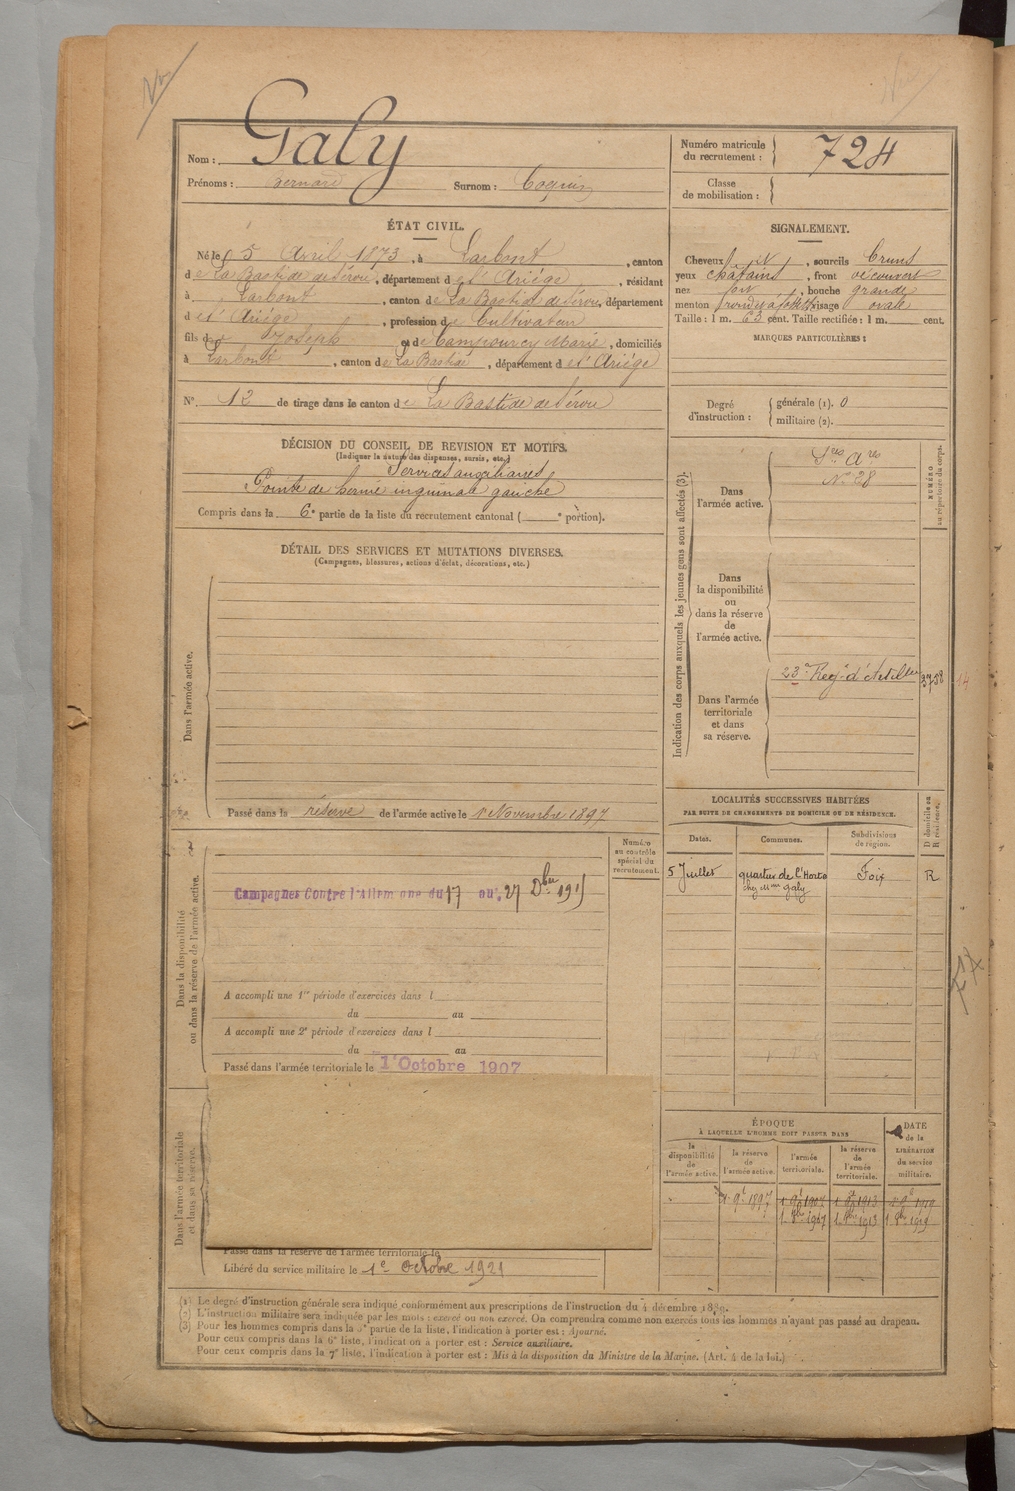 Nom : Galy
Prénoms : Bernard Surnom : Coquin
Numéro matricule du recrutement : 724
Classe de mobilisation :
ÉTAT CIVIL.
Né le 5 Avril 1873, à Larbont, canton
de La Bastide de Sérou, département de l'Ariège, résidant
à Larbont, canton de La Bastide de Sérou, département
de l'Ariège, profession de Cultivateur
fils de Joseph et de Campourcy Marie, domiciliés
à Larbont, canton de La Bastide, département de l'Ariège
N° 12 de tirage dans le canton de La Bastide de Sérou
SIGNALEMENT.
Cheveux, sourcils bruns
yeux châtains, front découvert
nez fort, bouche grande
menton rond, visage ovale
Taille : 1 m. 63 cent. Taille rectifiée : 1 m. cent.
MARQUES PARTICULIÈRES :
Degré d'instruction : générale (1). 0
militaire (2).
DÉCISION DU CONSEIL DE REVISION ET MOTIFS.
(Indiquer la nature des dispenses, sursis, etc.)
Services auxiliaires
Pointe de hernie inguinale gauche
Compris dans la 6e partie de la liste du recrutement cantonal ( e portion).
DÉTAIL DES SERVICES ET MUTATIONS DIVERSES.
(Campagnes, blessures, actions d'éclat, décorations, etc.)
Dans l'armée active.
Passé dans la réserve de l'armée active le 1r Novembre 1897
Indication des corps auxquels les jeunes gens sont affectés (3).
NUMÉRO au répertoire du corps.
Dans l'armée active.
Sces Ares
N° 28
Dans la disponibilité ou dans la réserve de l'armée active.
Dans l'armée territoriale et dans sa réserve.
23e Regt d'Artillerie
3758
14
LOCALITÉS SUCCESSIVES HABITÉES
PAR SUITE DE CHANGEMENTS DE DOMICILE OU DE RÉSIDENCE.
D domicile ou R résidence.
Dates. Communes. Subdivisions de région.
5 Juillet quartier de l'Horto Foix R
chez Mme Galy
Dans la disponibilité ou dans la réserve de l'armée active.
Numéro au contrôle spécial du recrutement.
Campagnes Contre l'Allemagne du 17 au 27 Dbre 1915
A accompli une 1re période d'exercices dans l
du au
A accompli une 2e période d'exercices dans l
du au
Passé dans l'armée territoriale le 1r Octobre 1907
Dans l'armée territoriale et dans sa réserve.
Passé dans la réserve de l'armée territoriale le
Libéré du service militaire le 1e octobre 1921
ÉPOQUE
À LAQUELLE L'HOMME DOIT PASSER DANS
DATE de la LIBÉRATION du service militaire.
la disponibilité de l'armée active. la réserve de l'armée active. l'armée territoriale. la réserve de l'armée territoriale.
1r 9bre 1897 1r 9bre 1907 1r 9bre 1913 1r 9bre 1919
1r 8bre 1907 1r 8bre 1913 1r 8bre 1919
(1) Le degré d'instruction générale sera indiqué conformément aux prescriptions de l'instruction du 4 décembre 1889.
(2) L'instruction militaire sera indiquée par les mots : exercé ou non exercé. On comprendra comme non exercés tous les hommes n'ayant pas passé au drapeau.
(3) Pour les hommes compris dans la 5e partie de la liste, l'indication à porter est : Ajourné.
Pour ceux compris dans la 6e liste, l'indication à porter est : Service auxiliaire.
Pour ceux compris dans la 7e liste, l'indication à porter est : Mis à la disposition du Ministre de la Marine. (Art. 4 de la loi.)